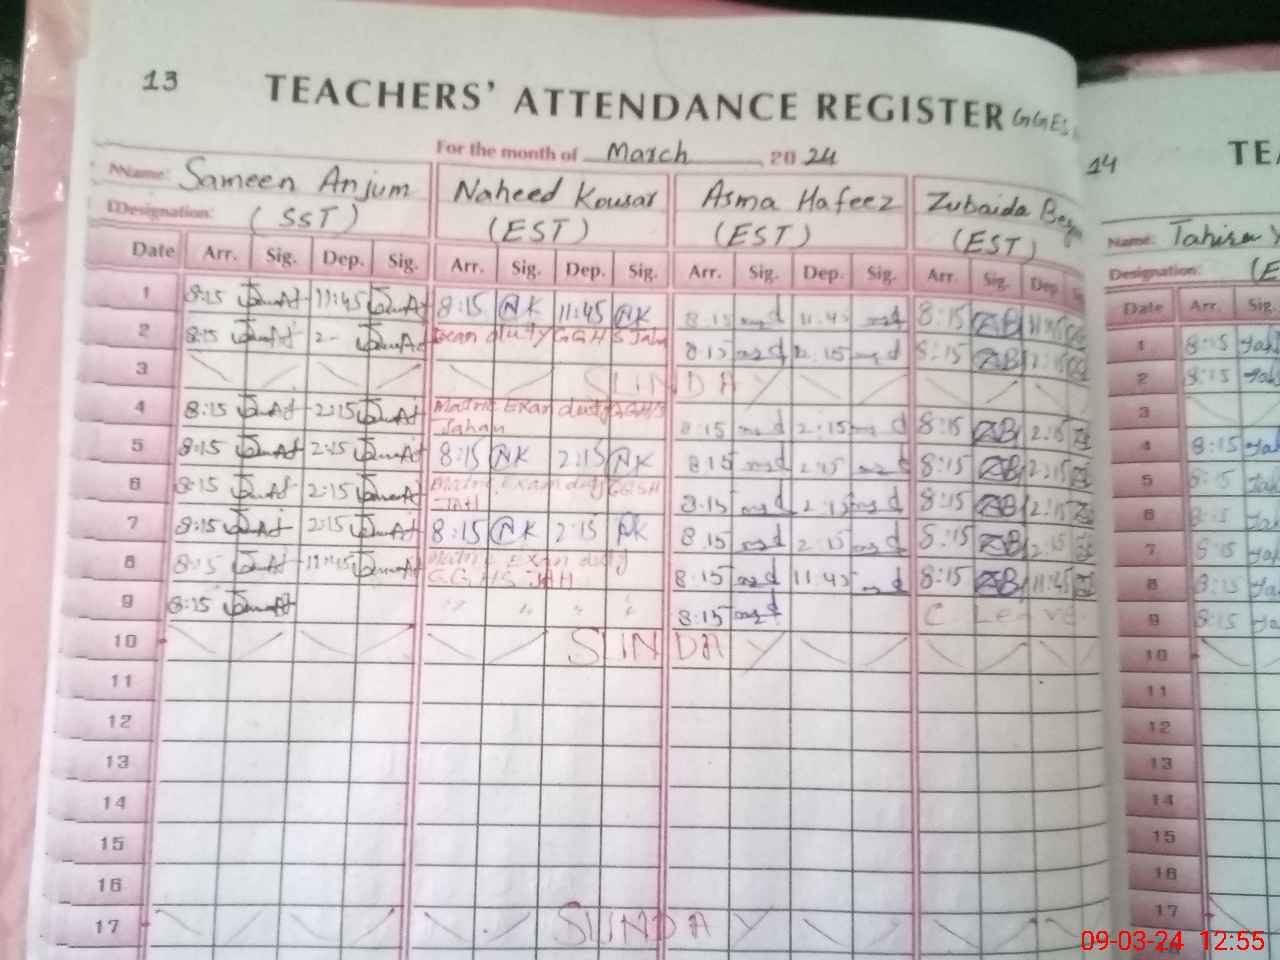 13 TEACHERS' ATTENDANCE REGISTER
For the month of March 2024
Name: Sameen Anjum Naheed Kousar Asma Hafeez Zubaida
Designation: (SST) (EST) (EST) (EST)
Date Arr. Sig. Dep. Sig. Arr. Sig. Dep. Sig. Arr. Sig. Dep. Sig. Arr. Sig. Dep.
1 8:15 11:45 8:15 NK 11:45 NK 8:15 11:45 8:15 ZB 11:45
2 8:15 2- Exam duty GGHS 8:15 2:15 8:15 ZB 2:15
3 SUNDAY
4 8:15 2:15 Matric Exam duty GGHS 8:15 2:15 8:15 ZB 2:15
Jahan
5 8:15 2:15 8:15 NK 2:15 NK 8:15 2:15 8:15 ZB 2:15
6 8:15 2:15 Matric Exam duty GGSH 8:15 2:15 8:15 ZB 2:15
JAH
7 8:15 2:15 8:15 NK 2:15 NK 8:15 2:15 8:15 ZB 2:15
8 8:15 11:45 Matric Exam duty 8:15 11:45 8:15 ZB 11:45
GGHS JAH
9 8:15 " " " " 8:15 C. Leave
10 SUNDAY
11
12
13
14
15
16
17 SUNDAY
14 TEA
Name: Tahira Y
Designation: (E
Date Arr. Sig.
1 8:15
2 8:15
3
4 8:15
5 8:15
6 8:15
7 8:15
8 8:15
9 8:15
10
11
12
13
14
15
16
17
09-03-24 12:55